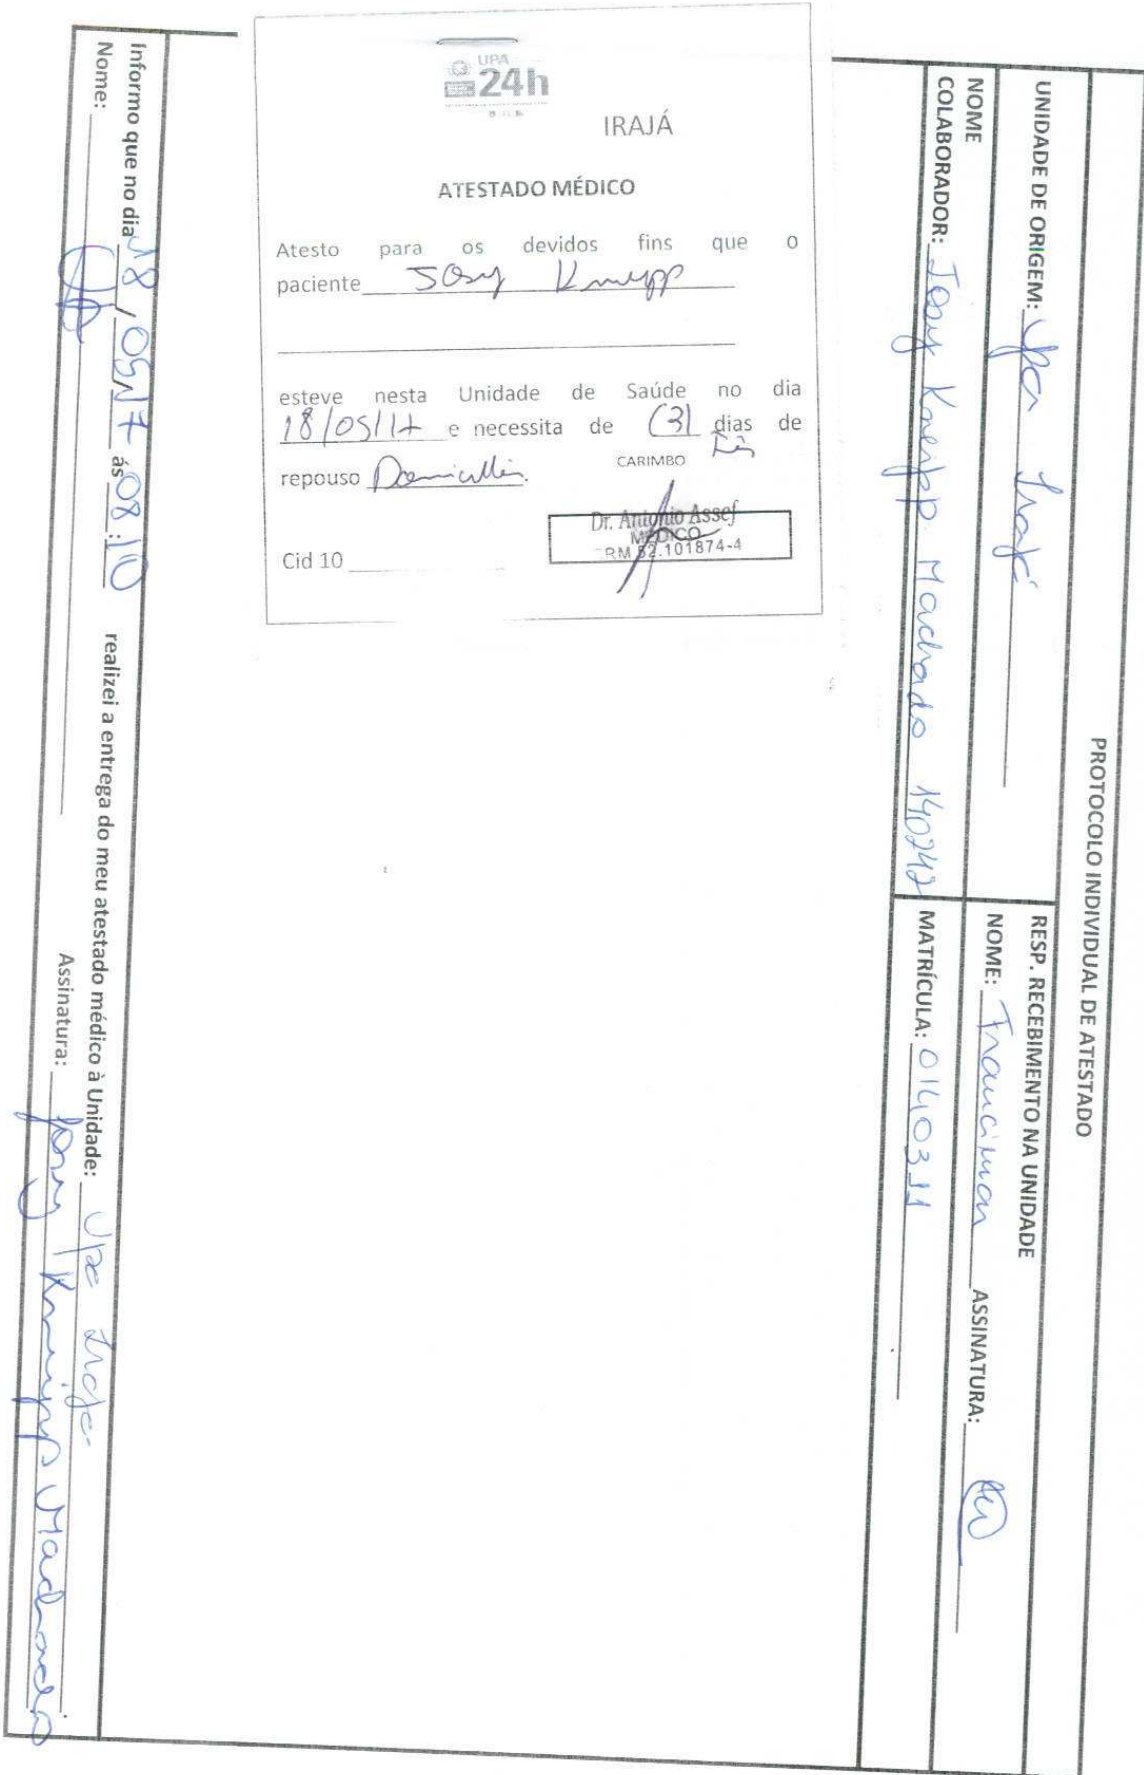 PROTOCOLO INDIVIDUAL DE ATESTADO
UNIDADE DE ORIGEM: Upa Irajá
RESP. RECEBIMENTO NA UNIDADE
NOME: Francimar ASSINATURA:
NOME
COLABORADOR: Josy Knupp Machado 140242
MATRÍCULA: 0140311
UPA
24h
IRAJÁ
ATESTADO MÉDICO
Atesto para os devidos fins que o
paciente Josy Knupp
esteve nesta Unidade de Saúde no dia
18/05/17 e necessita de (3) dias de
Três
repouso Domiciliar. CARIMBO
Dr. Antonio Assef
MÉDICO
CRM 52.101874-4
Cid 10
Informo que no dia 18/05/17 ás 08:10 realizei a entrega do meu atestado médico à Unidade: Upa Irajá
Nome: Assinatura: Josy Knupp Machado